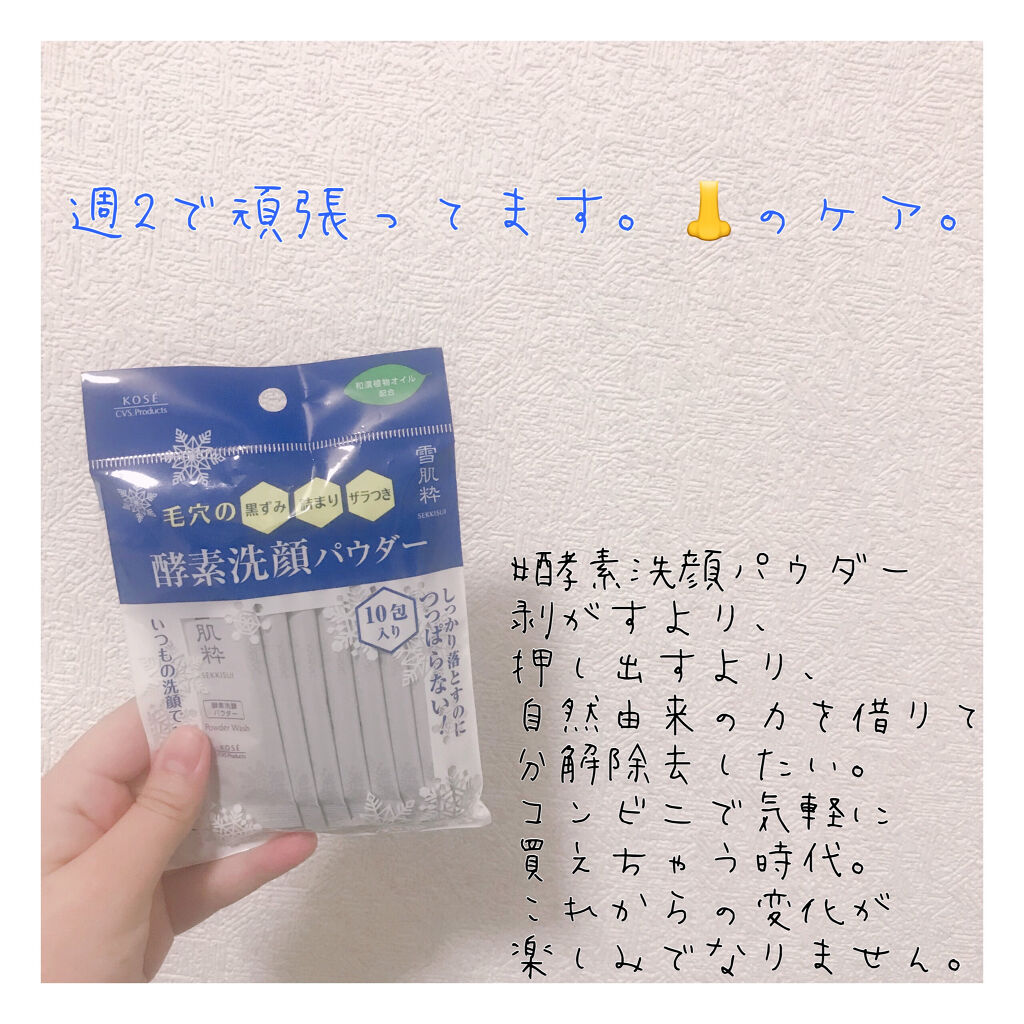 週2で頑張ってます。👃のケア。
KOSÉ
CVS. Products
和漢植物オイル
配合
雪肌粋
SEKKISUI
毛穴の 黒ずみ 詰まり ザラつき
酵素洗顔パウダー
10包
入り
しっかり落とすのに
つっぱらない!
いつもの洗顔で
肌粋
SEKKISUI
酵素洗顔
パウダー
Powder Wash
KOSÉ
#酵素洗顔パウダー
剥がすより、
押し出すより、
自然由来の力を借りて
分解除去したい。
コンビニで気軽に
買えちゃう時代。
これからの変化が
楽しみでなりません。